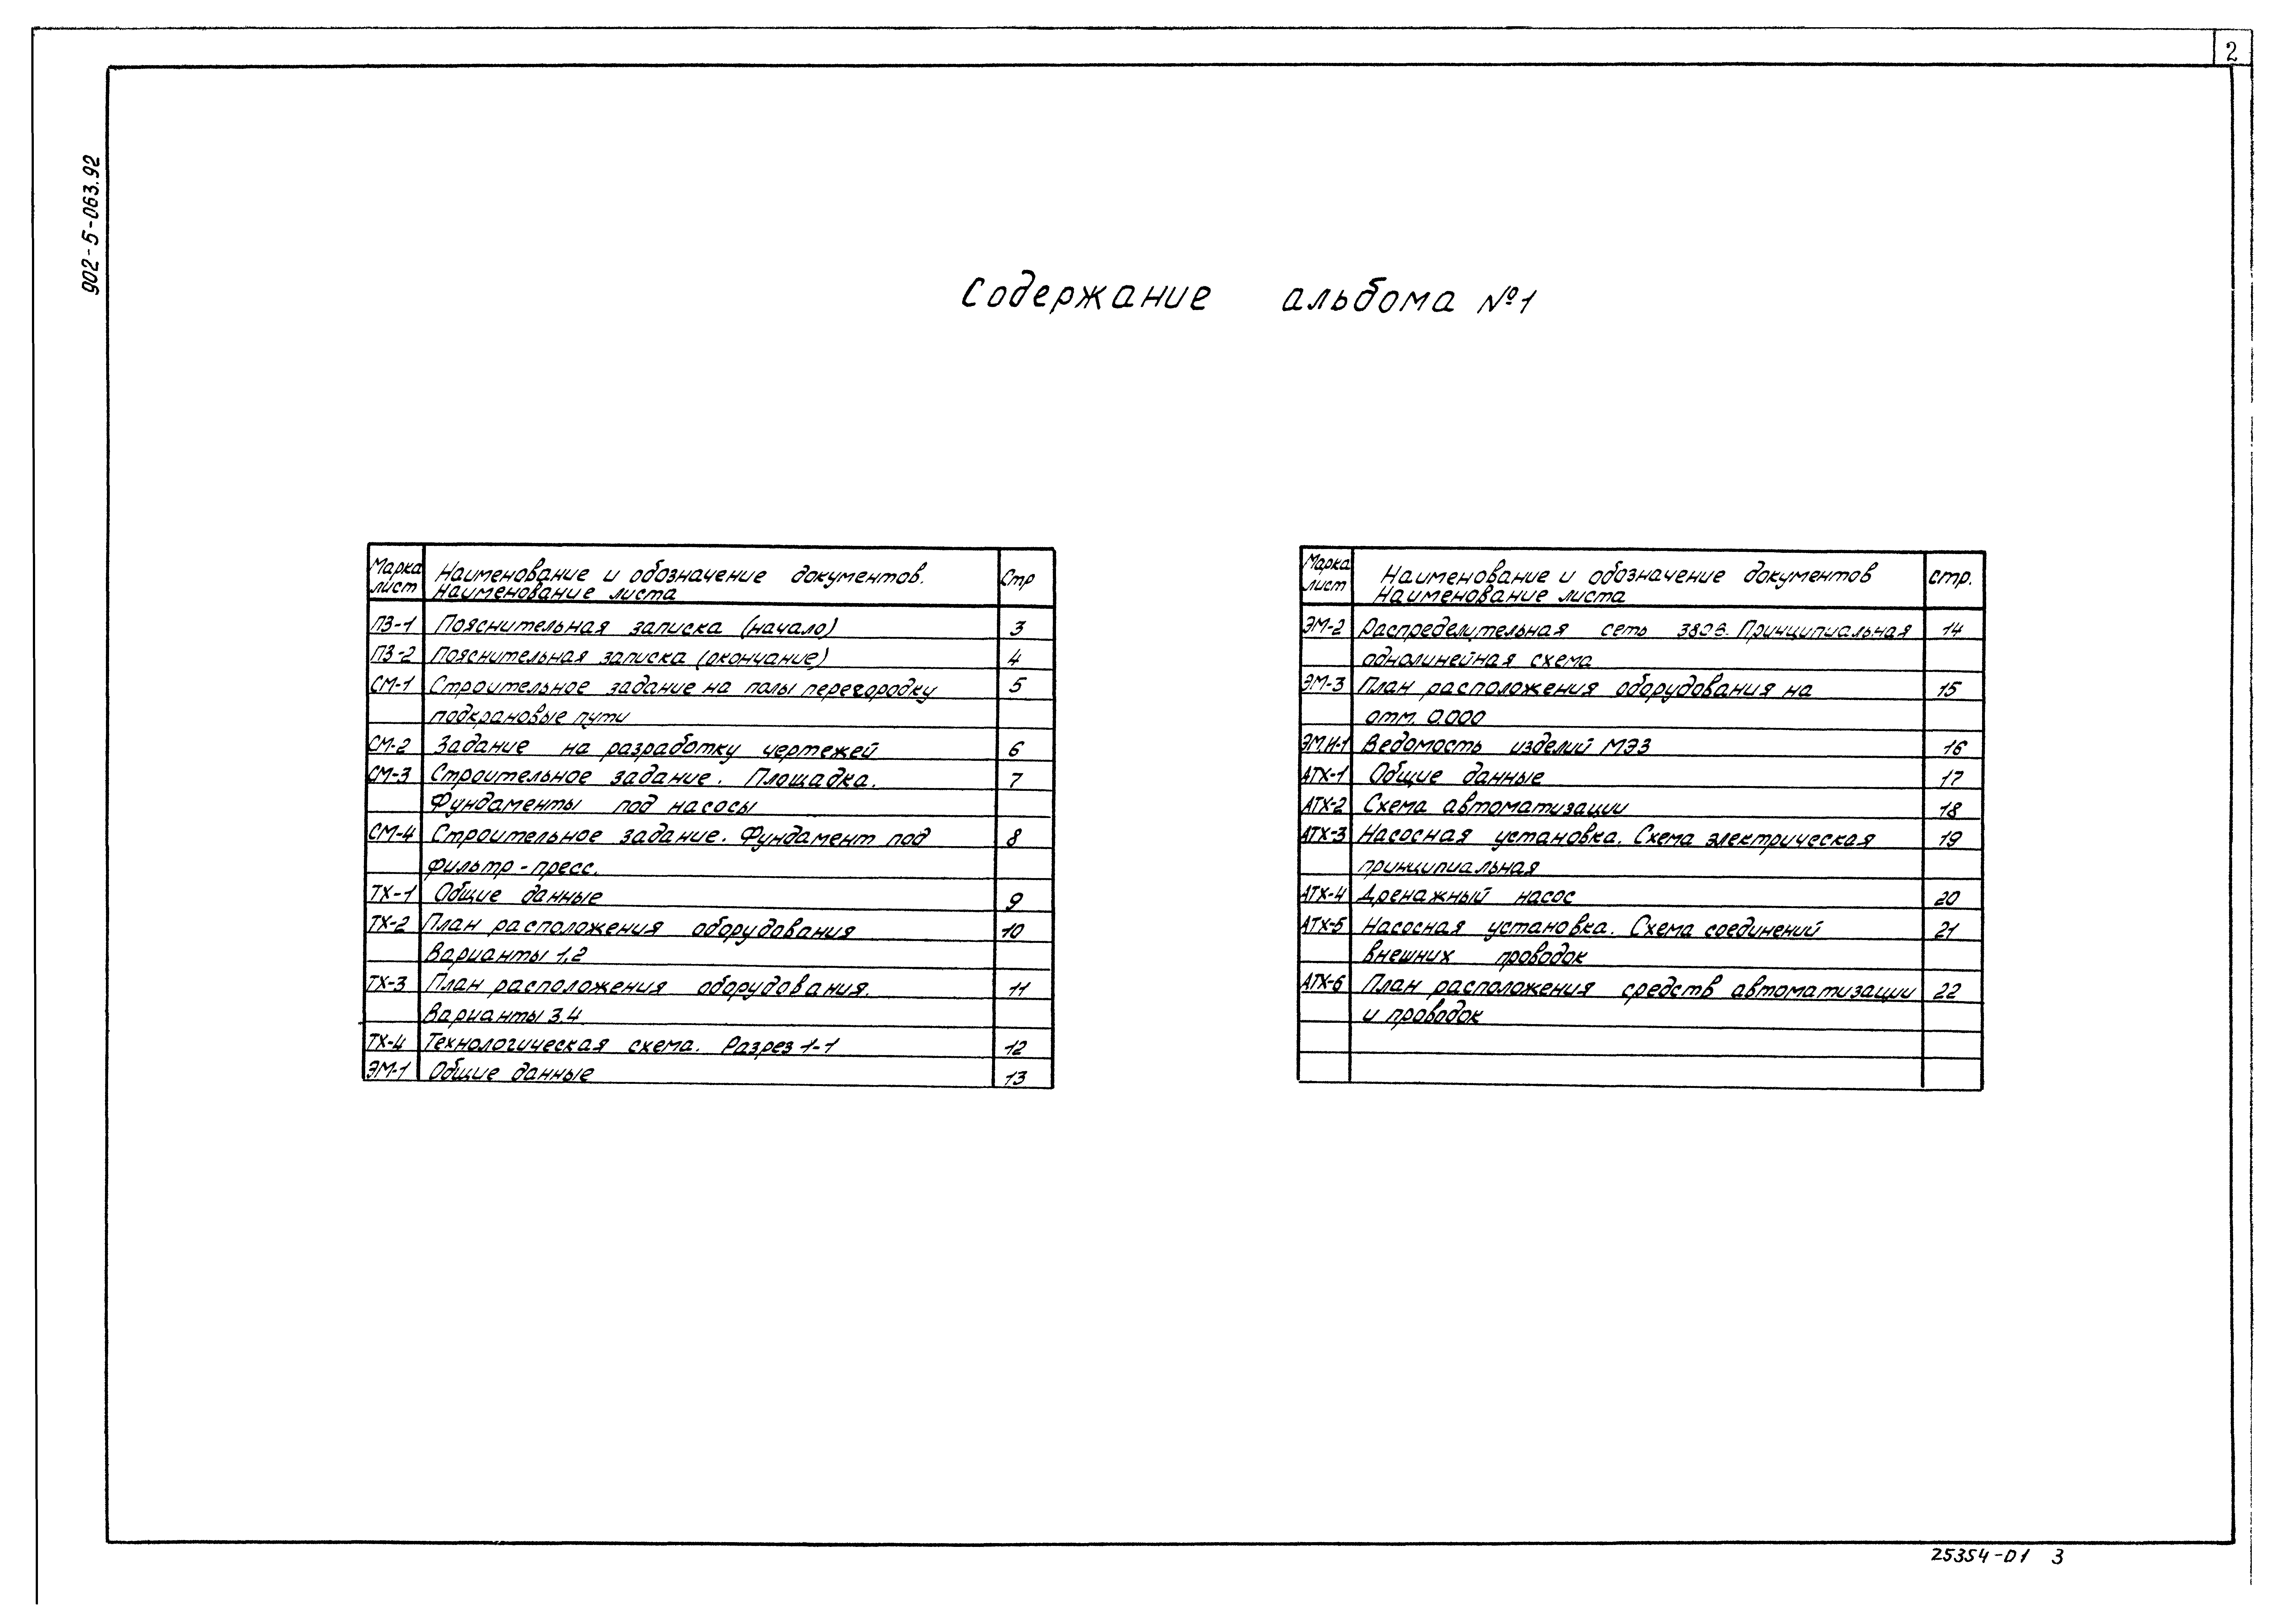 2
902-5-063.92
Содержание альбома №1
Марка лист
Наименование и обозначение документов.
Наименование листа
Стр
ПЗ-1 Пояснительная записка (начало) 3
ПЗ-2 Пояснительная записка (окончание) 4
СМ-1 Строительное задание на полы перегородку 5
подкрановые пути
СМ-2 Задание на разработку чертежей 6
СМ-3 Строительное задание. Площадка. 7
Фундаменты под насосы
СМ-4 Строительное задание. Фундамент под 8
фильтр-пресс.
ТХ-1 Общие данные 9
ТХ-2 План расположения оборудования 10
Варианты 1,2
ТХ-3 План расположения оборудования. 11
Варианты 3.4
ТХ-4 Технологическая схема. Разрез 1-1 12
ЭМ-1 Общие данные 13
Марка лист
Наименование и обозначение документов
Наименование листа
стр.
ЭМ-2 Распределительная сеть 380В. Принципиальная 14
однолинейная схема
ЭМ-3 План расположения оборудования на 15
отм. 0.000
ЭМ.И-1 Ведомость изделий МЭЗ 16
АТХ-1 Общие данные 17
АТХ-2 Схема автоматизации 18
АТХ-3 Насосная установка. Схема электрическая 19
принципиальная
АТХ-4 Дренажный насос 20
АТХ-5 Насосная установка. Схема соединений 21
внешних проводок
АТХ-6 План расположения средств автоматизации 22
и проводок
25354-01 3